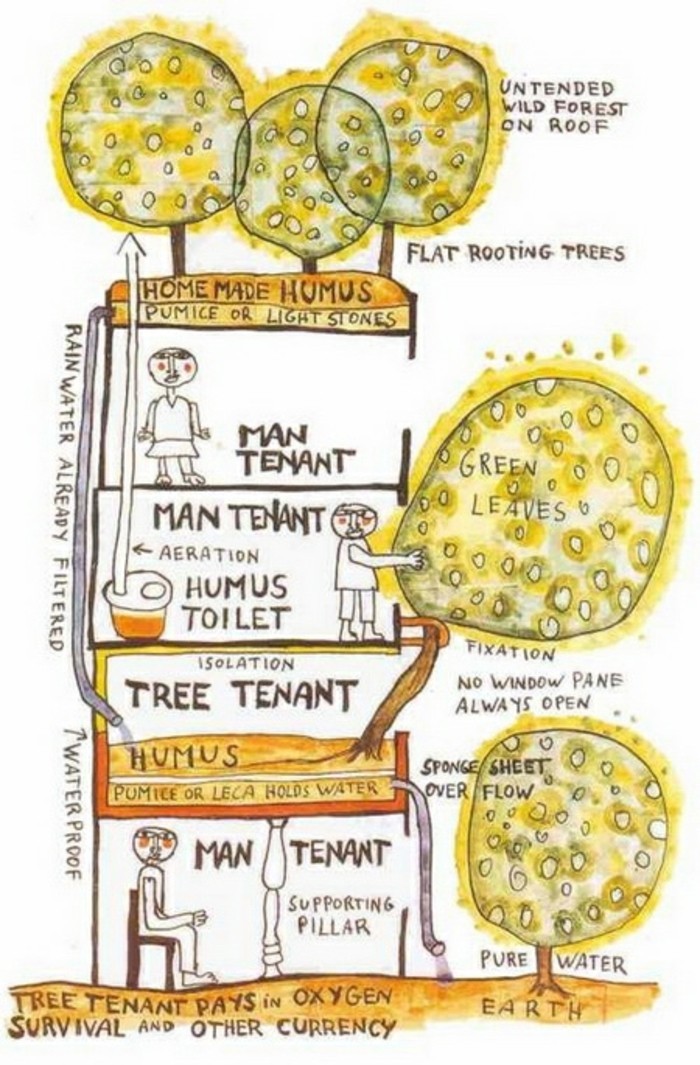 UNTENDED
WILD FOREST
ON ROOF
FLAT ROOTING TREES
HOME MADE HUMUS
PUMICE OR LIGHT STONES
RAINWATER ALREADY FILTERED
MAN
TENANT
GREEN
LEAVES
MAN TENANT
← AERATION
HUMUS
TOILET
FIXATION
ISOLATION
TREE TENANT
NO WINDOW PANE
ALWAYS OPEN
HUMUS
SPONGE SHEET
OVER FLOW
PUMICE OR LECA HOLDS WATER
↑WATERPROOF
MAN TENANT
SUPPORTING
PILLAR
PURE WATER
EARTH
TREE TENANT PAYS in OXYGEN
SURVIVAL AND OTHER CURRENCY